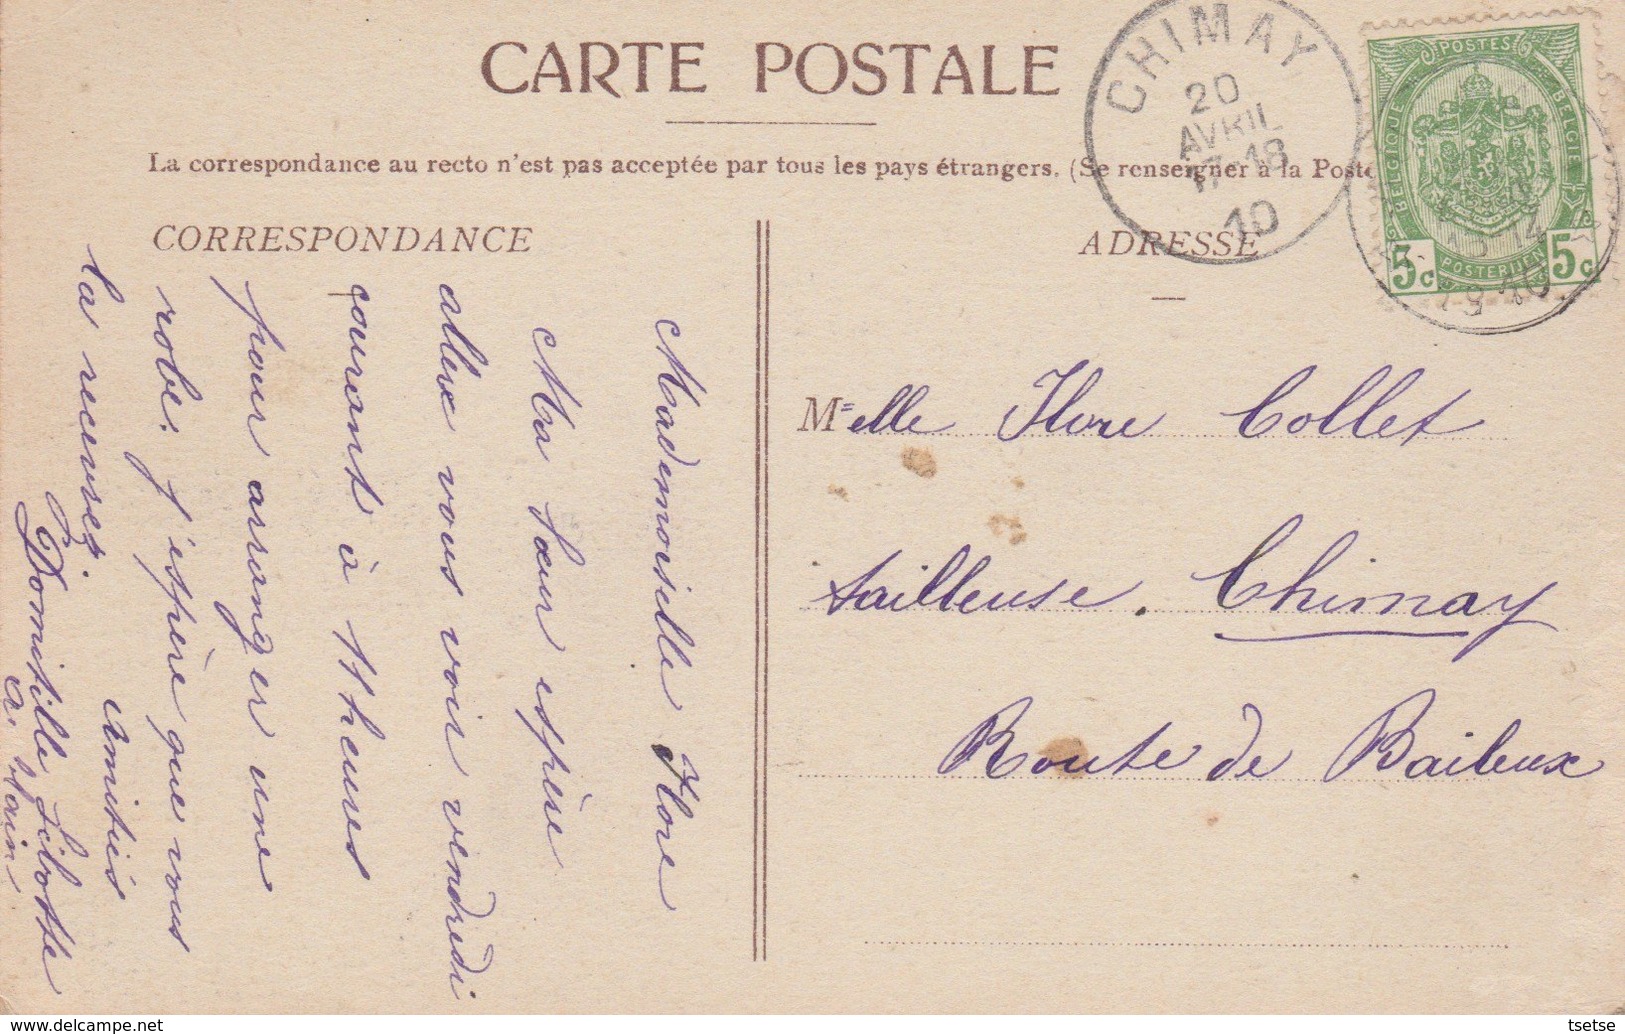 CARTE POSTALE
La correspondance au recto n'est pas acceptée par tous les pays étrangers. (Se renseigner à la Poste
CORRESPONDANCE
ADRESSE
CHIMAY
20
AVRIL
17-18
10
POSTES
BELGIQUE
BELGIE
POSTERIJEN
5c 5c
Mademoiselle Flore
Ma sœur espère
aller vous voir vendredi
courant à 11 heures
pour arranger une
robe. J'espère que vous
la recevrez.
Amitiés
Domitille
à
Melle Flore Collet
tailleuse. Chimay
Route de Baileux
tsetse
delcampe.net